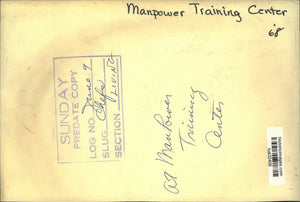 Manpower Training Center
'68
SUNDAY
PREDATE COPY
LOG NO. June 9
SLUG Chefs
SECTION LIVING
at ManPower
Training
Center